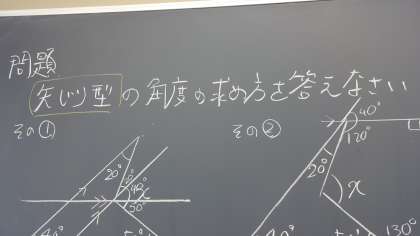 問題
矢じり型の角度の求め方を答えなさい
その①
その②
40°
120°
20°
20°
40°
x
x
50°
130°